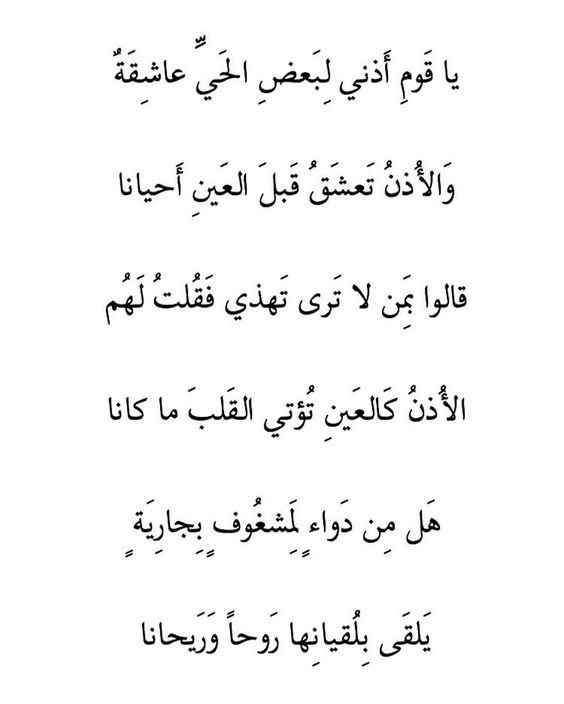 يا قَومِ أَذني لِبَعضِ الحَيِّ عاشِقَةٌ
وَالأُذنُ تَعشَقُ قَبلَ العَينِ أَحيانا
قالوا بِمَن لا تَرى تَهذي فَقُلتُ لَهُم
الأُذنُ كَالعَينِ تُؤتي القَلبَ ما كانا
هَل مِن دَواءٍ لِمَشغُوفٍ بِجارِيَةٍ
يَلقَى بِلُقيانِها رَوحاً وَرَيحانا